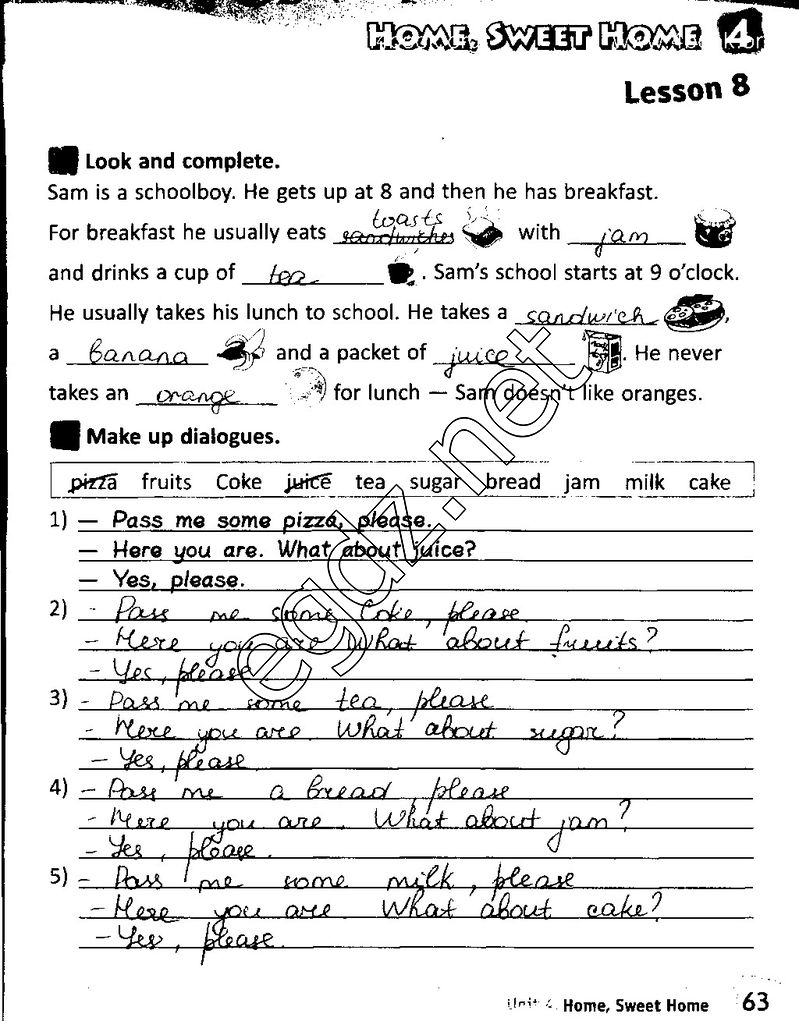 HOME, SWEET HOME 4
Lesson 8
Look and complete.
Sam is a schoolboy. He gets up at 8 and then he has breakfast.
toasts
For breakfast he usually eats sandwiches with jam
and drinks a cup of tea . Sam's school starts at 9 o'clock.
He usually takes his lunch to school. He takes a sandwich ,
a banana and a packet of juice . He never
takes an orange for lunch — Sam doesn't like oranges.
Make up dialogues.
pizza fruits Coke juice tea sugar bread jam milk cake
1) — Pass me some pizza, please.
— Here you are. What about juice?
— Yes, please.
2) - Pass me some Coke, please
- Here you are What about fruits?
- Yes, please.
3) - Pass me some tea, please
- Here you are. What about sugar?
- Yes, please
4) - Pass me a bread, please
- Here you are. What about jam?
- Yes, please.
5) - Pass me some milk, please
- Here you are. What about cake?
- Yes, please.
egdz.net
Unit 4. Home, Sweet Home 63